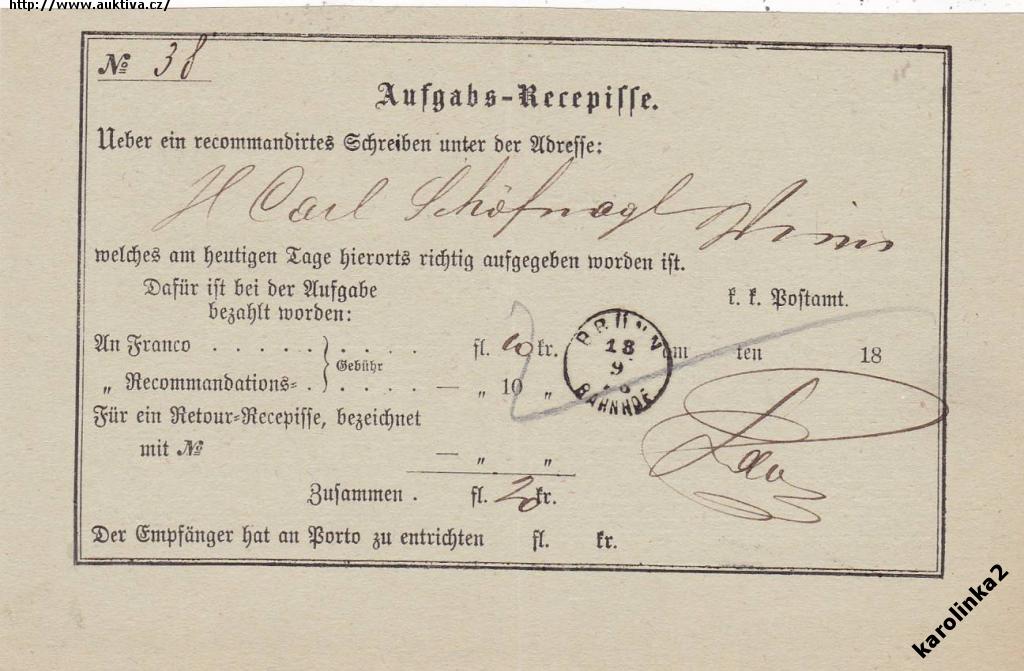 http://www.auktiva.cz/
№ 38
Aufgabs-Recepisse.
Ueber ein recommandirtes Schreiben unter der Adresse:
H Carl Schöfnagl
welches am heutigen Tage hierorts richtig aufgegeben worden ist.
Dafür ist bei der Aufgabe
bezahlt worden:
k. k. Postamt.
An Franco . . . . . . . . . . fl. 10 kr.
Gebühr
„ Recommandations= . . . . . — „ 10 „
BRÜNN
18
9
BAHNHOF
am ten 18
Für ein Retour=Recepisse, bezeichnet
mit № — „ „
Zusammen . fl. 20 kr.
Der Empfänger hat an Porto zu entrichten fl. kr.
karolinka2